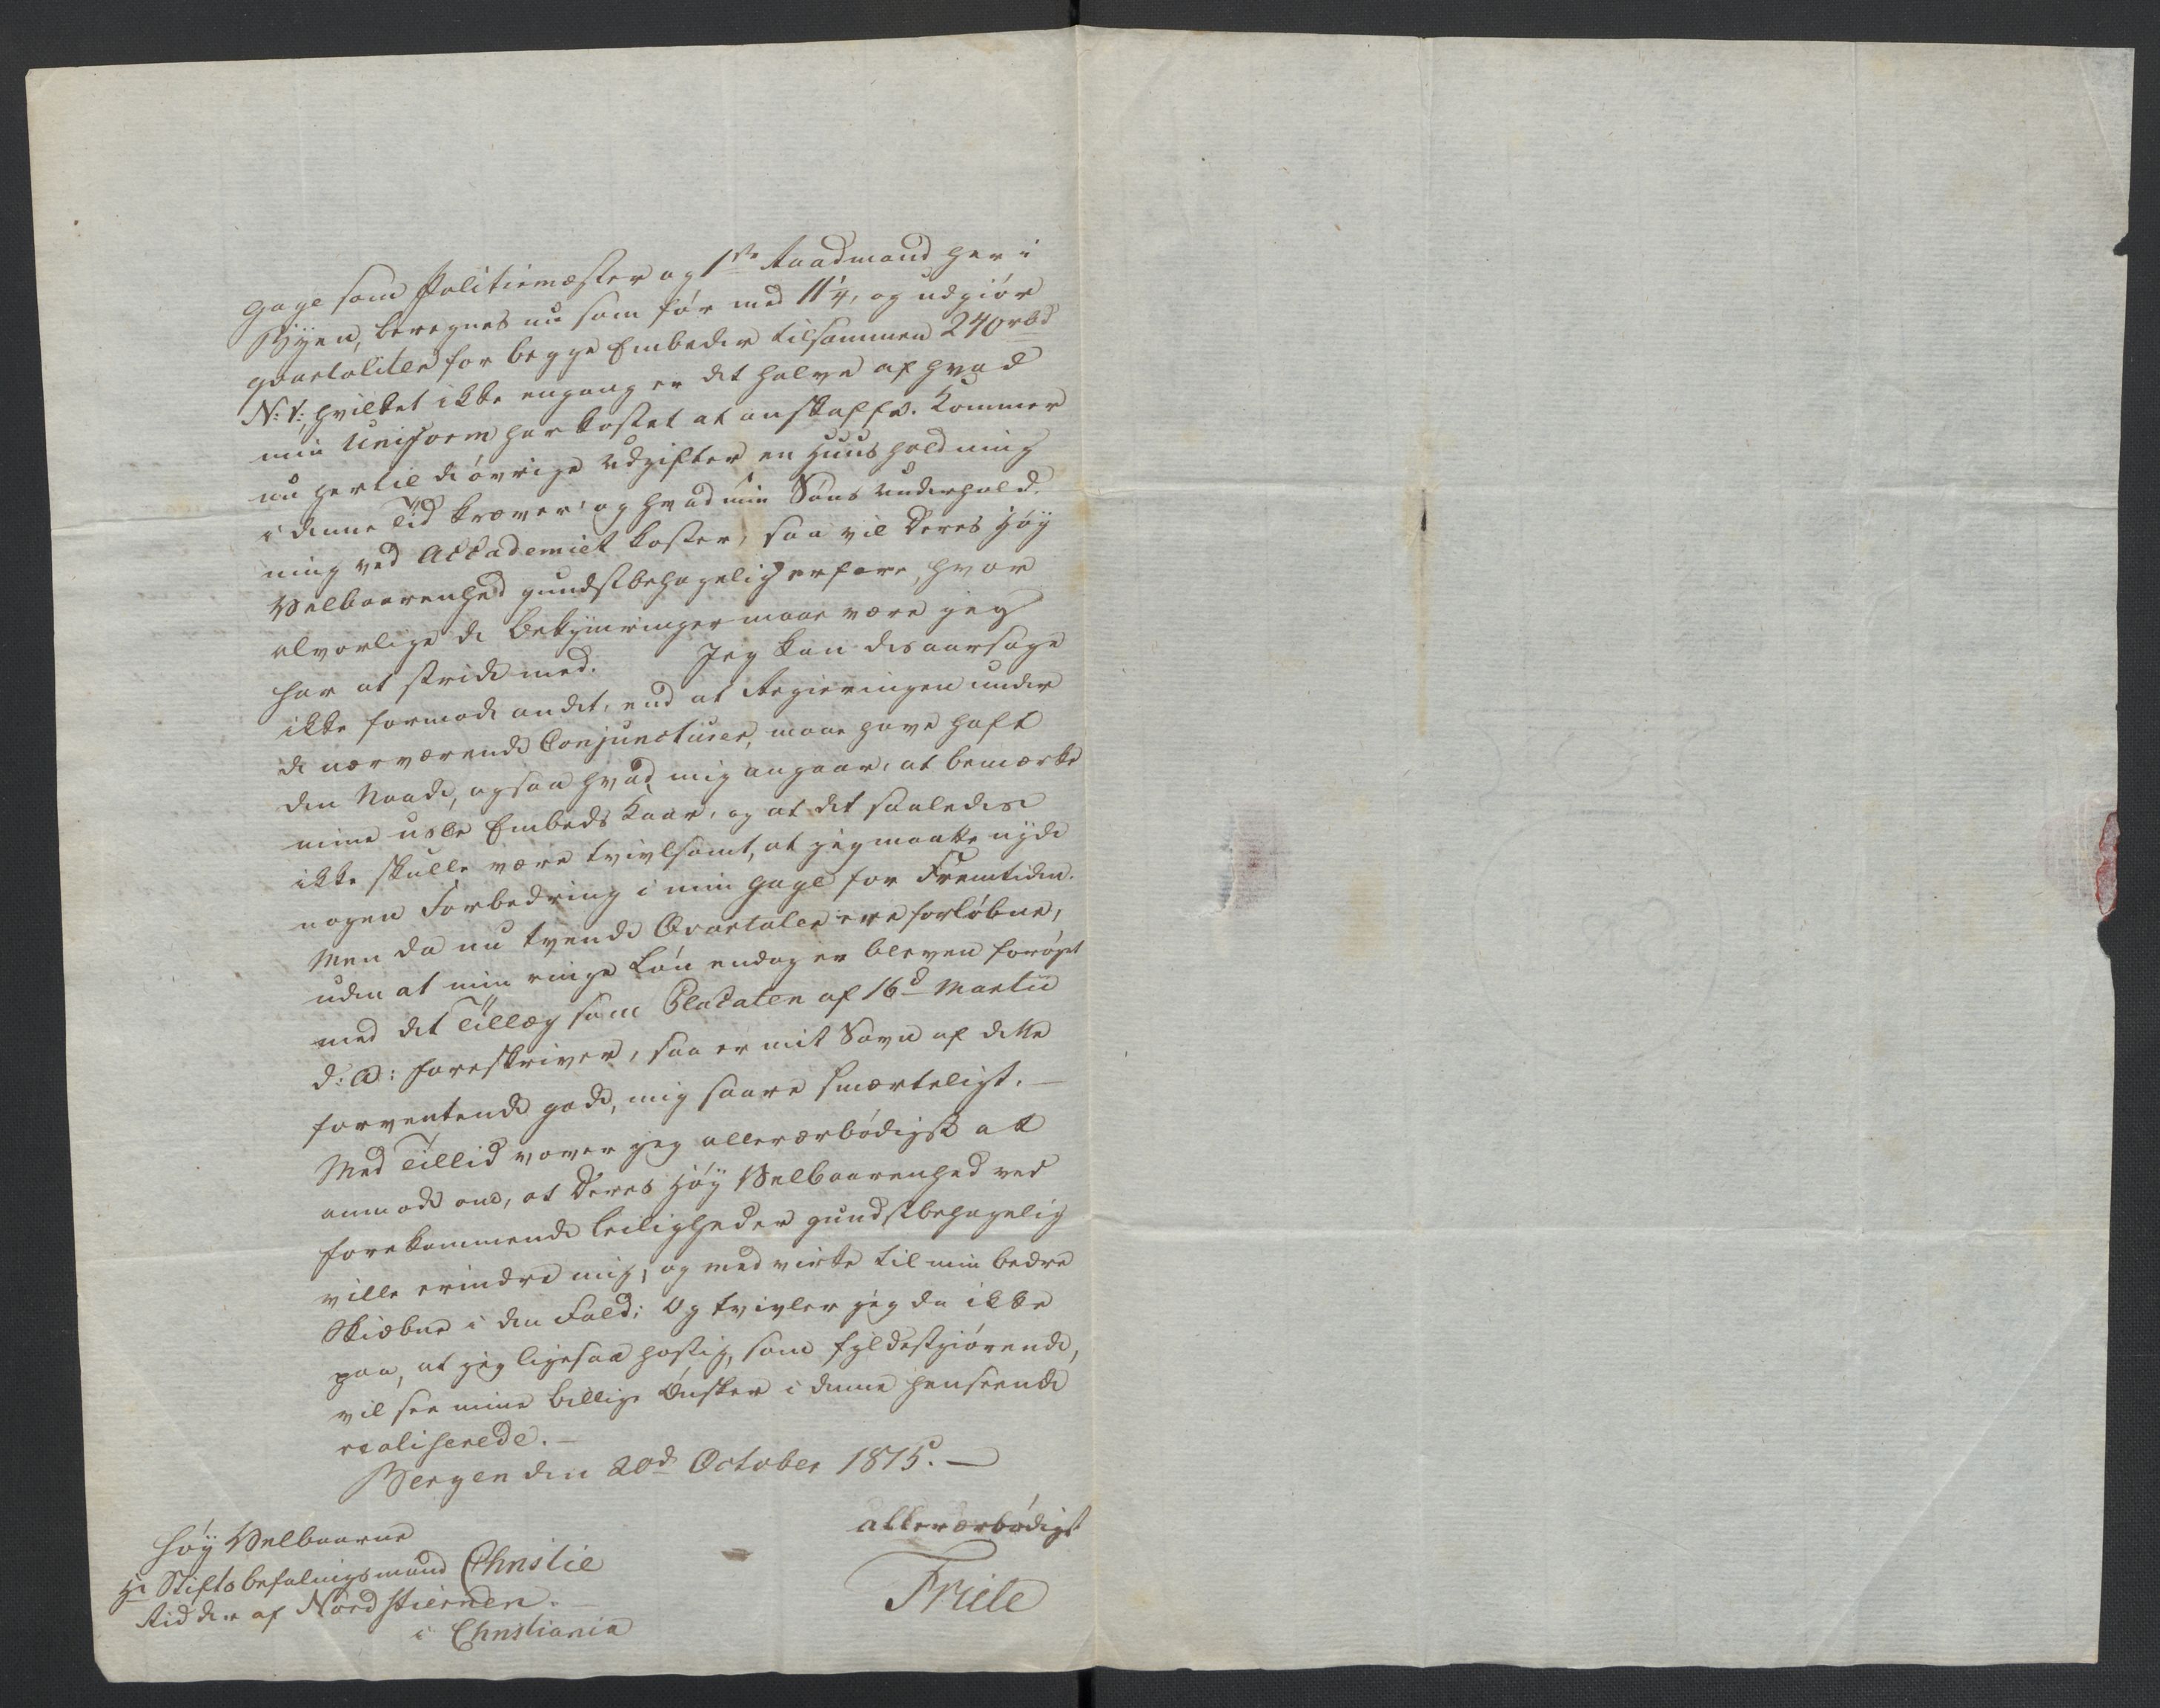 Gage som Politiemæster og 1ste Raadmand her i
Byen, beregnes nu som før med 11 1/4, og udgiør
qvartaliter for begge Embeder tilsammen 240 rbd
N: V: hvilket ikke engang er det halve af hvad
min Uniform har kostet at anskaffe. Kommer
nu hertil de øvrige Udgifter en Huusholdning
i denne Tid kræver, og hvad min Søns Underhold-
ning ved Accademiet koster, saa vil Deres Høÿ
Velbaarenhed gunstbehagelig erfare, hvor
alvorlige de Bekÿmringer maae være jeg
har at stride med. Jeg kan desaarsage
ikke formode andet, end at Regieringen under
de nærværende Conjuncturer, maae have haft
den Naade, ogsaa hvad mig angaar, at bemærke
mine usle Embeds Kaar, og at det saaledes
ikke skulle være tvivlsomt, at jeg maatte nÿde
nogen Forbedring i min Gage for Fremtiden.
Men da nu tvende Qvartaler ere forløbne,
uden at min ringe Løn endog er bleven forøget
med det Tillæg som Placaten af 16d Martii
d: A: foreskriver, saa er mit Savn af dette
forventende gode, mig saare smærteligt. —
Med Tillid vover jeg allerærbødigst at
anmode om, at Deres Høÿ Velbaarenhed ved
forekommende Leiligheder gunstbehagelig
ville erindre mig, og medvirke til min bedre
Skiæbne i den Fald; Og tvivler jeg da ikke
paa, at jeg ligesaa hastig, som fyldestgiørende,
vil see mine billige Ønsker i denne henseende
realiserede. —
Bergen den 20d October 1815. —
allerærbødigst
Friele
Høÿ Velbaarne
Hr Stiftsbefalingsmand Christie
Ridder af Nordstiernen. —
i Christiania